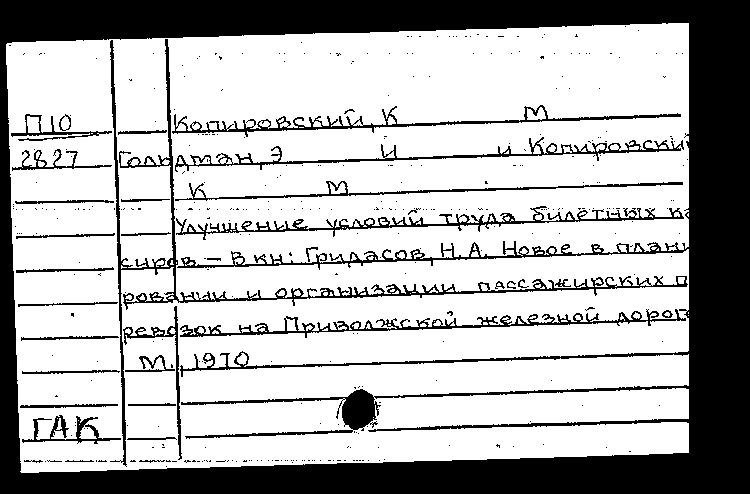 П10 Копировский, К М
2827 Гольдман, Э И и Копировский
К М
Улучшение условий труда билетных ка
сиров – В кн: Гридасов, Н. А. Новое в плани
ровании и организации пассажирских п
ревозок на Приволжской железной дороге
М., 1970
ГАК